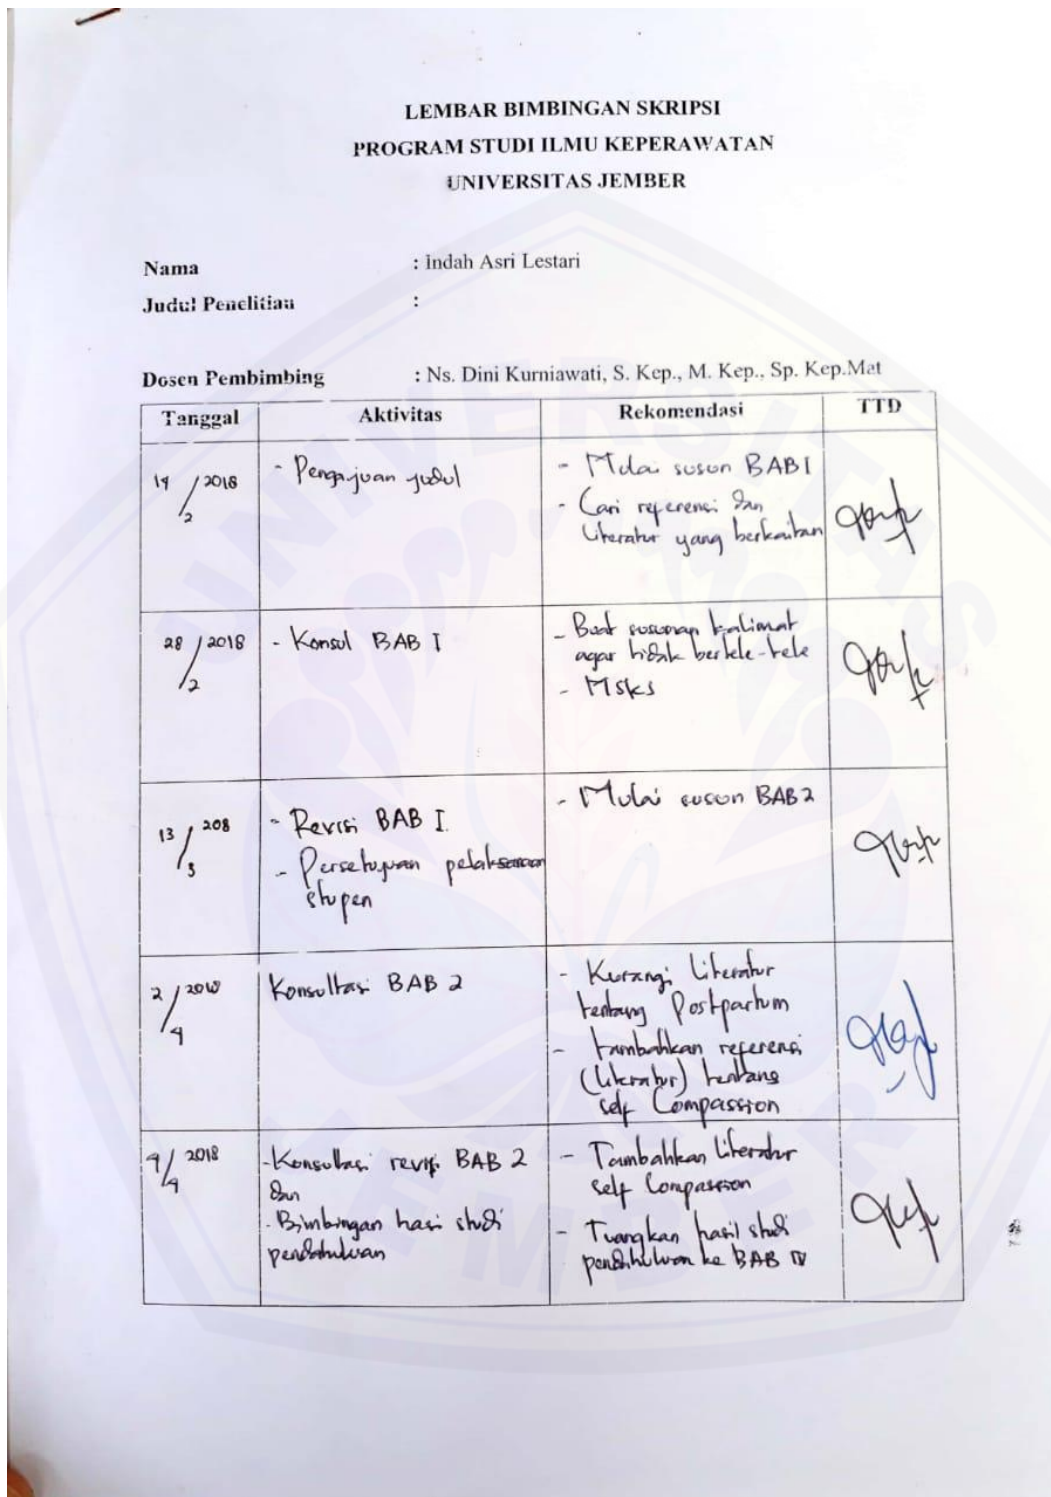 LEMBAR BIMBINGAN SKRIPSI
PROGRAM STUDI ILMU KEPERAWATAN
UNIVERSITAS JEMBER
Nama : Indah Asri Lestari
Judul Penelitian :
Dosen Pembimbing : Ns. Dini Kurniawati, S. Kep., M. Kep., Sp. Kep.Mat
Tanggal Aktivitas Rekomendasi TTD
14/2 2018
- Pengajuan judul
- Mulai susun BAB I
- Cari referensi dan
literatur yang berkaitan
28/2 2018
- Konsul BAB I
- Buat susunan kalimat
agar tidak bertele-tele
- MSKS
13/3 208
- Revisi BAB I.
- Persetujuan pelaksanaan
stupen
- Mulai susun BAB 2
2/4
Konsultasi BAB 2
- Kurangi literatur
tentang Postpartum
- tambahkan referensi
(literatur) tentang
self Compassion
9/4 2018
- Konsultasi revisi BAB 2
dan
- Bimbingan hasi studi
pendahuluan
- Tambahkan literatur
self Compassion
- Tuangkan hasil studi
pendahuluan ke BAB IV
UNIVERSITAS
JEMBER